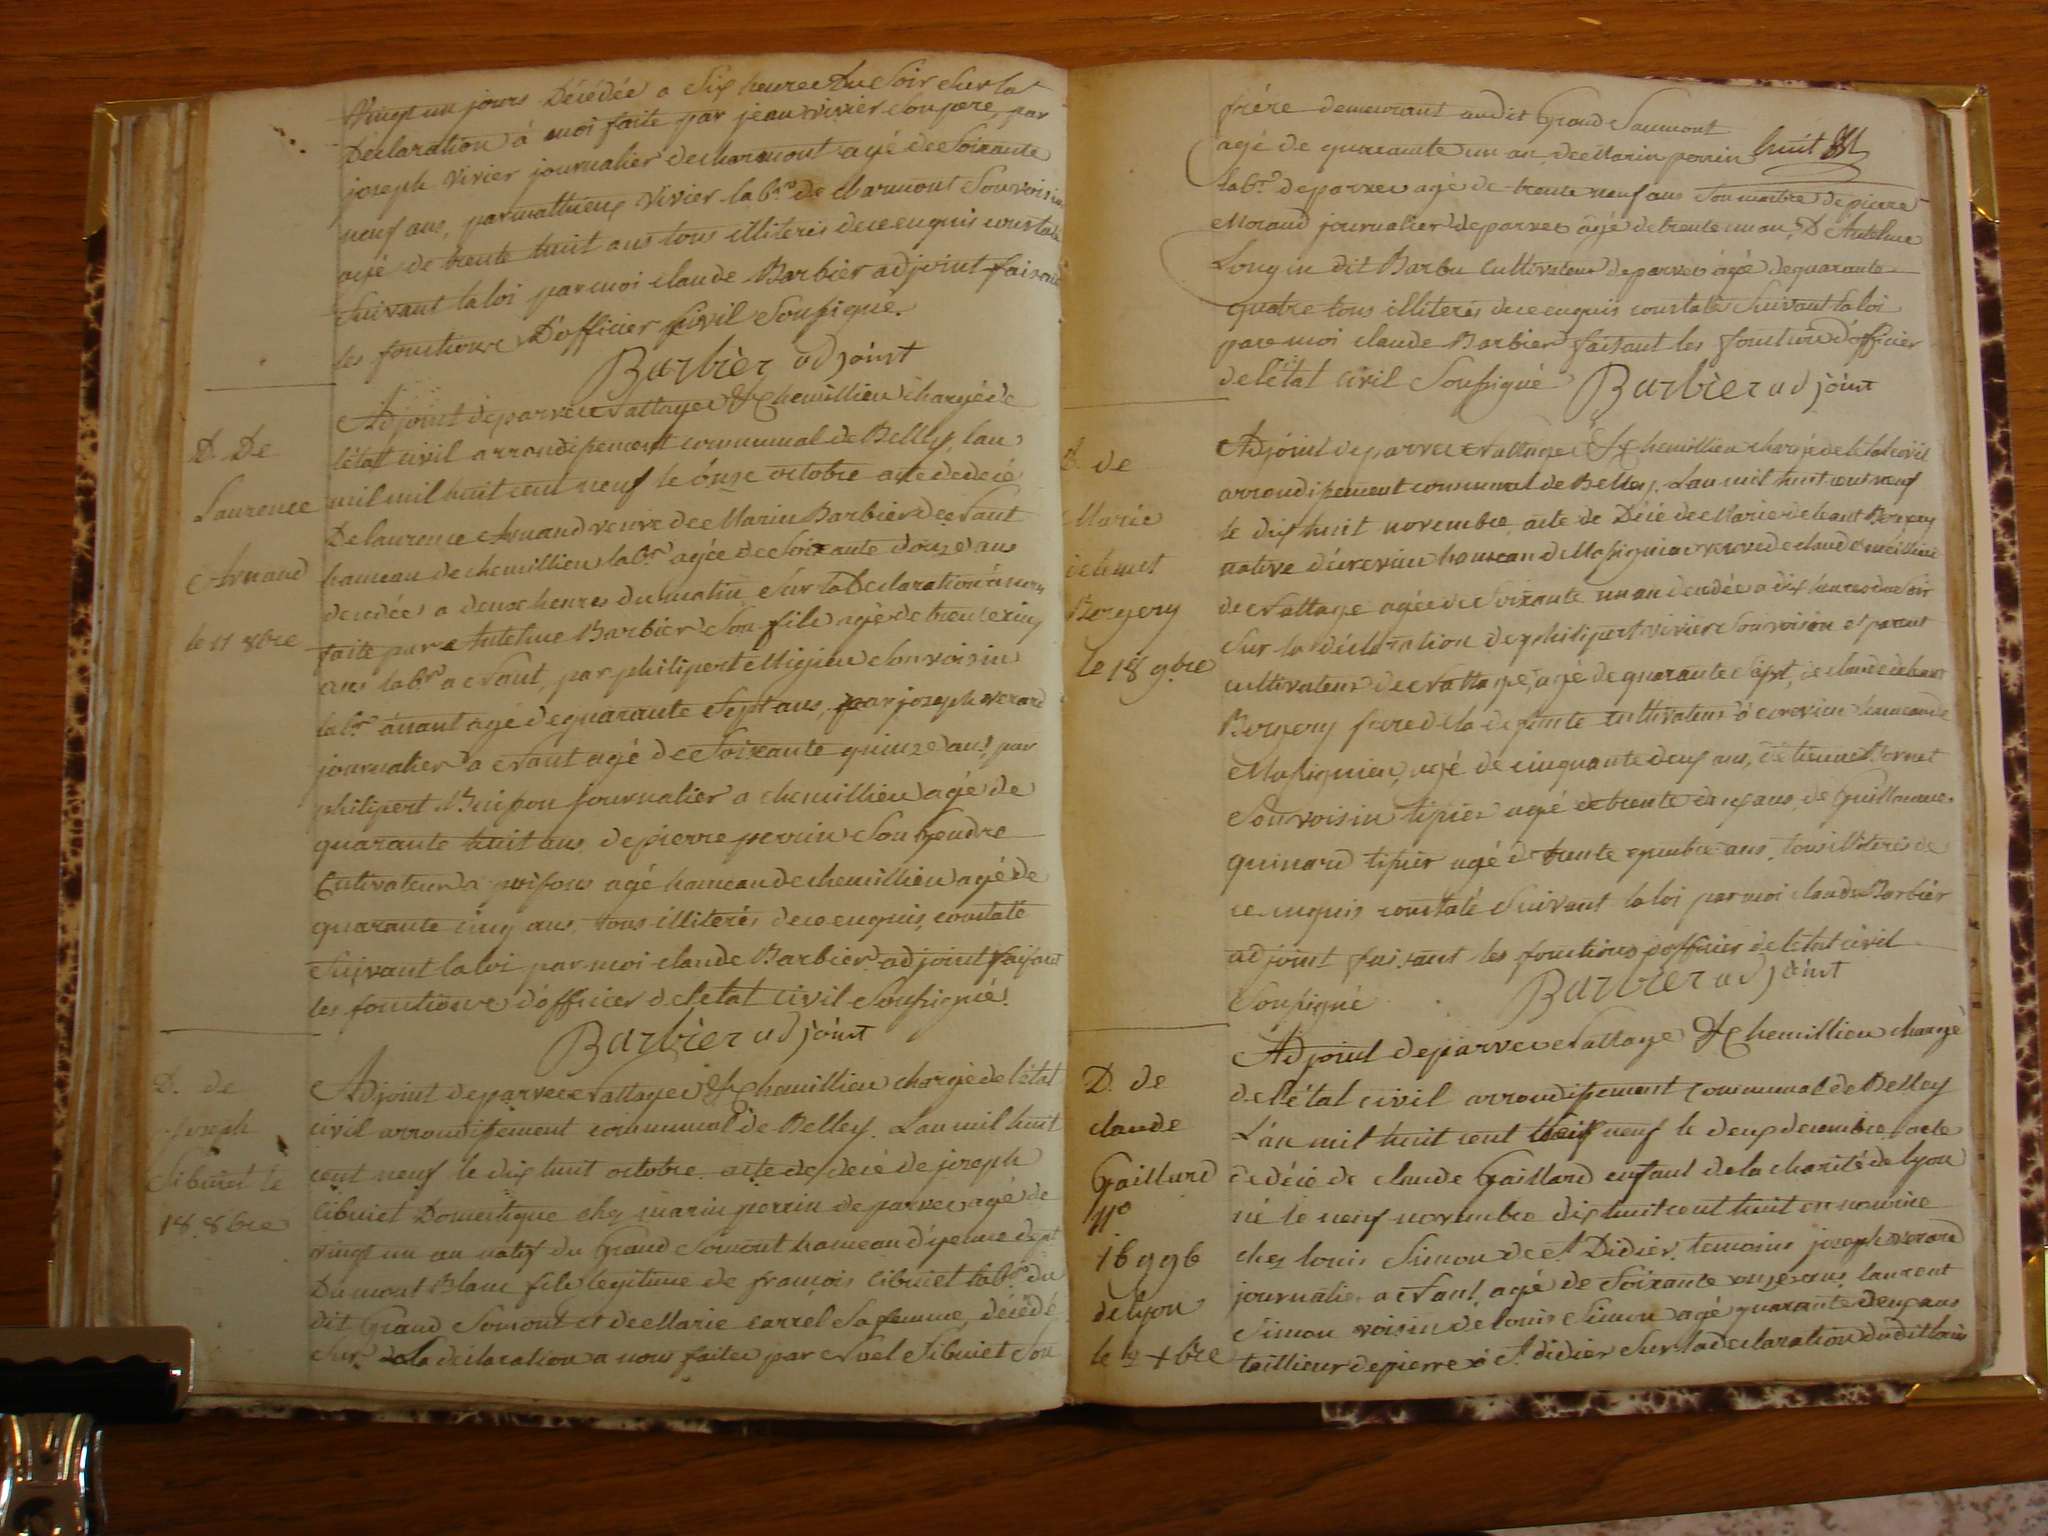 Vingt un jours Décédée a Six heures Du Soir Sur la
Declaration á moi faite par jean vivier Son pere, par
joseph vivier journalier de charmont agé de Soixante
neuf ans, par mathieux vivier lab.r de charmont Son voisin
agé de trente huit ans tous illiterés de ce enquis constaté
Suivant la loi par moi claude Barbier adjoint faisant
les fonctions D'officier civil Soussigné.
Barbier adjoint
D. De
Laurence
Arnaud
le 11 8bre
Adjoint de parves nattages & Chemillieu chargé de
l'état civil arrondissement communal de Belley, lan
mil mil huit cent neuf le onze octobre acte de décé
De laurence Arnaud veuve de Marin Barbier de nant
hameau de chemillieu lab.r agée de Soixante douze ans
decedée a deux heures du matin Sur la Declaration á nous
faite par Antelme Barbier Son fils agé de trente cinq
ans lab.r a nant, par philipert Migieu Son voisin
lab.r á nant agé de quarante Sept ans, par joseph verard
journalier a nant agé de Soixante quinze ans, par
philipert journalier a chemillieu agé de
quarante huit ans, de pierre perrin Son Gendre
Cultivateur a poisons agé hameau de chemillieu agé de
quarante cinq ans, tous illiterés de ce enquis, constaté
Suivant la loi par moi claude Barbier adjoint faisant
les fonctions d'officier de létat civil Soussigné.
Barbier adjoint
D. de
Joseph
Sibuiet le
18 8bre
Adjoint de parves nattages & Chemillieu chargé de l'état
civil arrondissement communal de Belley. Lan mil huit
cent neuf le dix huit octobre acte de decé de joseph
Cibuiet Domestique chez marin perrin de parves agé de
vingt un an natif du Grand Somont hameau d'yenne dept
Du mont Blanc fils legitime de françois Cibuiet lab.r du
dit Grand Somont et de Marie Carrel Sa femme, décédé
Sur la déclaration a nous faite par Noel Sibuiet Son
frére demeurant audit Grand Saumont
agé de quarante un an, de Marin perrin huit
lab.r de parves agé de trente neuf ans Son maitre de pierre
Moraud journalier de parves agé de trente un an, D'Antelme
Longin dit Barbu Cultivateur de parves ágé de quarante
quatre tous illiterés de ce enquis constaté Suivant la loi
par moi claude Barbier faisant les fonctions d'officier
de létat civil Soussigné Barbier adjoint
D. de
Marie
dehaut
Bergery
le 18 9bre
Adjoint de parves nattages & Chemillieu chargé de letat civil
arrondissement communal de Belley. Lan mil huit cent neuf
le dix huit novembre acte de Décé de Marie dehaut Bergery
native décrevieu hameau de Massignieu veuve de claude
de Nattage agée de Soixante un an decedée a dix heures du Soir
Sur la déclaration de philipert vivier Son voisin et parent
cultivateur de nattage, agé de quarante Sept, de claude dehaut
Bergery frere de la defunte cultivateur á crevieu hameau de
Massignieu, agé de cinquante deux ans, détienne Bornet
Son voisin tissier agé de trente cinq ans, de Guillaume
Guinard tissier agé de trente quatre ans, tous illiterés de
ce enquis constaté Suivant la loi par moi claude Barbier
adjoint faisant les fonctions d'officier de letat civil
Soussigné Barbier adjoint
D. de
claude
Gaillard
n.o
16996
de lyon
le 2 Xbre
Adjoint de parves nattage & Chemillieu chargé
de l'état civil arrondissement Communal de Belley
L'an mil huit cent neuf le deux decembre acte
de décé de claude Gaillard enfant de la charité de lyon
né le neuf novembre dix huit cent huit en nourice
chez louis Simon de St Didier, temoins joseph verard
journalier a nant, agé de Soixante onze ans, laurent
Simon voisin de louis Simon agé quarante deux ans
taillieur de pierre á St didier Sur la declaration du dit louis